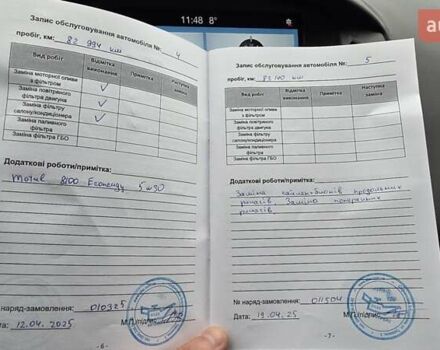 11:48 8°
Запис обслуговування автомобіля №: 4
пробіг, км: 82 994 км
Вид робіт
Відмітка виконання
Примітка
Наступна заміна
Заміна моторної оливи з фільтром
Заміна повітряного фільтра двигуна
Заміна фільтру салону/кондиціонера
Заміна паливного фільтра
Заміна фільтра ГБО
Додаткові роботи/примітка:
Motul 8100 5w30
№ наряд-замовлення: 010325
Дата: 12.04.2025
М.П./підпис
- 6 -
Запис обслуговування автомобіля №: 5
пробіг, км:
Вид робіт
Відмітка виконання
Примітка
Наступна заміна
Заміна моторної оливи з фільтром
Заміна повітряного фільтра двигуна
Заміна фільтру салону/кондиціонера
Заміна паливного фільтра
Заміна фільтра ГБО
Додаткові роботи/примітка:
Заміна сайлентблоків
важелів. Заміна поперечних
важелів.
№ наряд-замовлення: 011504
Дата: 19.04.25
М.П./підпис
- 7 -